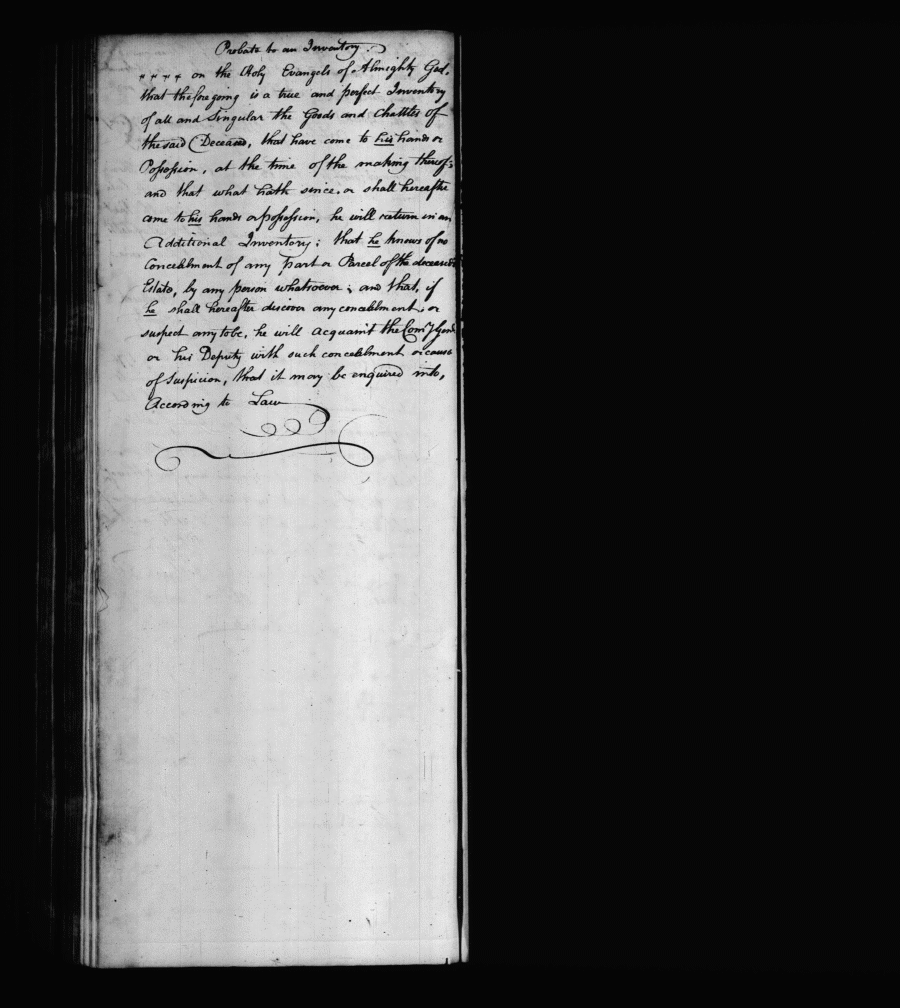 Probate to an Inventory.
" " " " on the Holy Evangels of Almighty God.
that the foregoing is a true and perfect Inventory
of all and Singular the Goods and Chattles of
the said Deceased, that have come to his hands or
Possession, at the time of the making thereof;
and that what hath since, or shall hereafter
come to his hands or possession, he will return in an
Additional Inventory; that he knows of no
Concealment of any part or Parcel of the deceased's
Estate, by any person whatsoever; and that, if
he shall hereafter discover any concealment, or
suspect any to be, he will acquaint the Comy Genl
or his Deputy with such concealment or cause
of Suspicion, that it may be enquired into,
According to Law